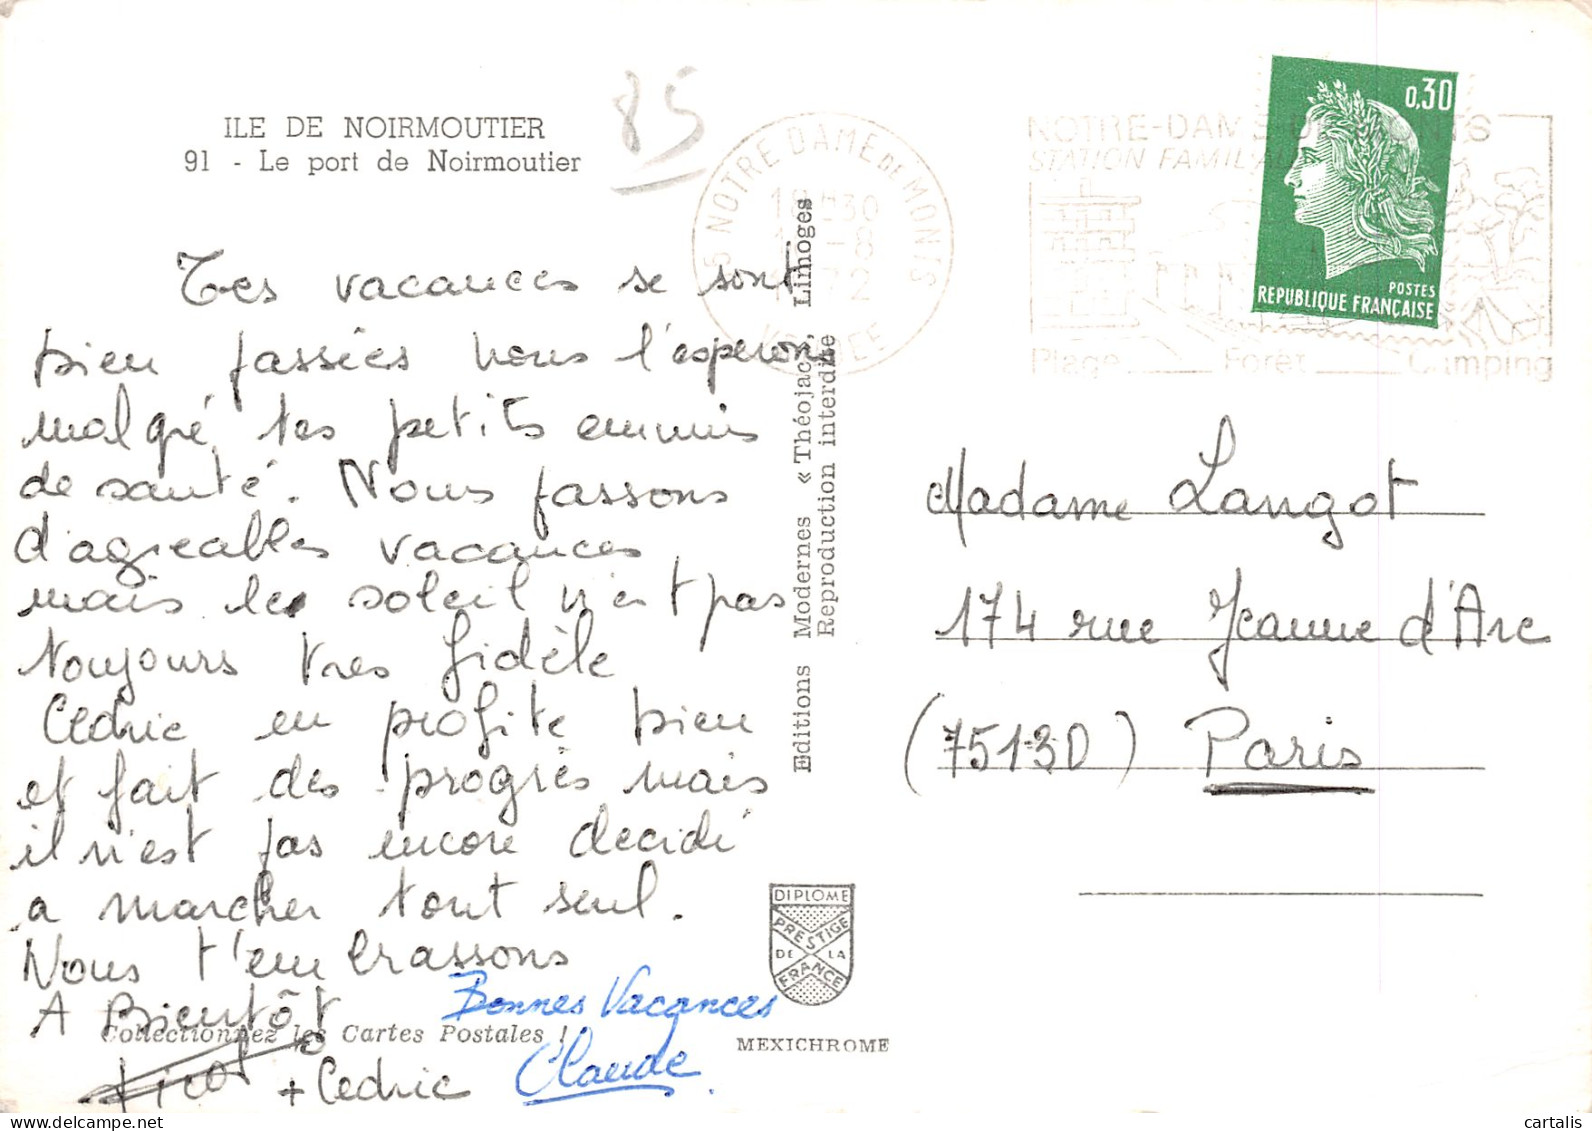 ILE DE NOIRMOUTIER
91 - Le port de Noirmoutier
85
NOTRE DAME DE MONTS
18 30
-8
1972
VENDEE
NOTRE-DAME-DE-MONTS
STATION FAMILIALE
Plage Forêt Camping
0,30
POSTES
REPUBLIQUE FRANÇAISE
Tes vacances se sont
bien passées nous l'esperons
malgré tes petits ennuis
de santé. Nous passons
d'agreables vacances
mais le soleil n'est pas
toujours tres fidèle
Cedric en profite bien
et fait des progrès mais
il n'est pas encore decidé
a marcher tout seul.
Nous t'embrassons
A Bientôt
+ Cedric
Bonnes Vacances
Claude
Collectionnez les Cartes Postales !
Editions Modernes « Théojac », Limoges
Reproduction interdite
Madame Langot
174 rue Jeanne d'Arc
(75130) Paris
DIPLOME
PRESTIGE
DE LA
FRANCE
MEXICHROME
cartalis